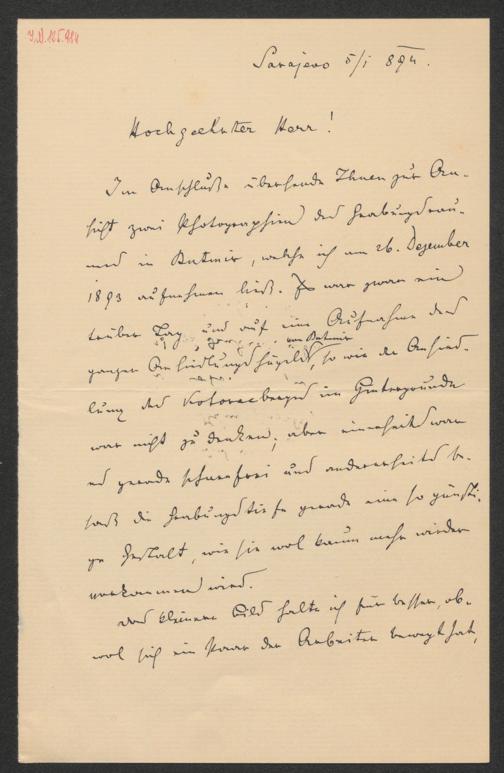 I.N. 105.914
Sarajevo 5/I 894.
Hochgeehrter Herr!
Im Anschluße übersende Ihnen zur An-
sicht zwei Photographien des Grabungsrau-
mes in Butmir, welche ich am 26. Dezember
1893 aufnehmen ließ. Es war zwar ein
trüber Tag und auf eine Aufnahme des
von Butmir
ganzen Ansiedlungshügels, so wie der Ansied-
lung des Kotoracberges im Hintergrunde
war nicht zu denken; aber einerseits war
es gerade schneefrei und andererseits be-
saß die Grabungstiefe gerade eine so günsti-
ge Gestalt, wie sie wol kaum mehr wieder
vorkommen wird.
Das kleinere Bild halte ich für besser, ob-
wol sich ein Paar der Arbeiter bewegt hat,